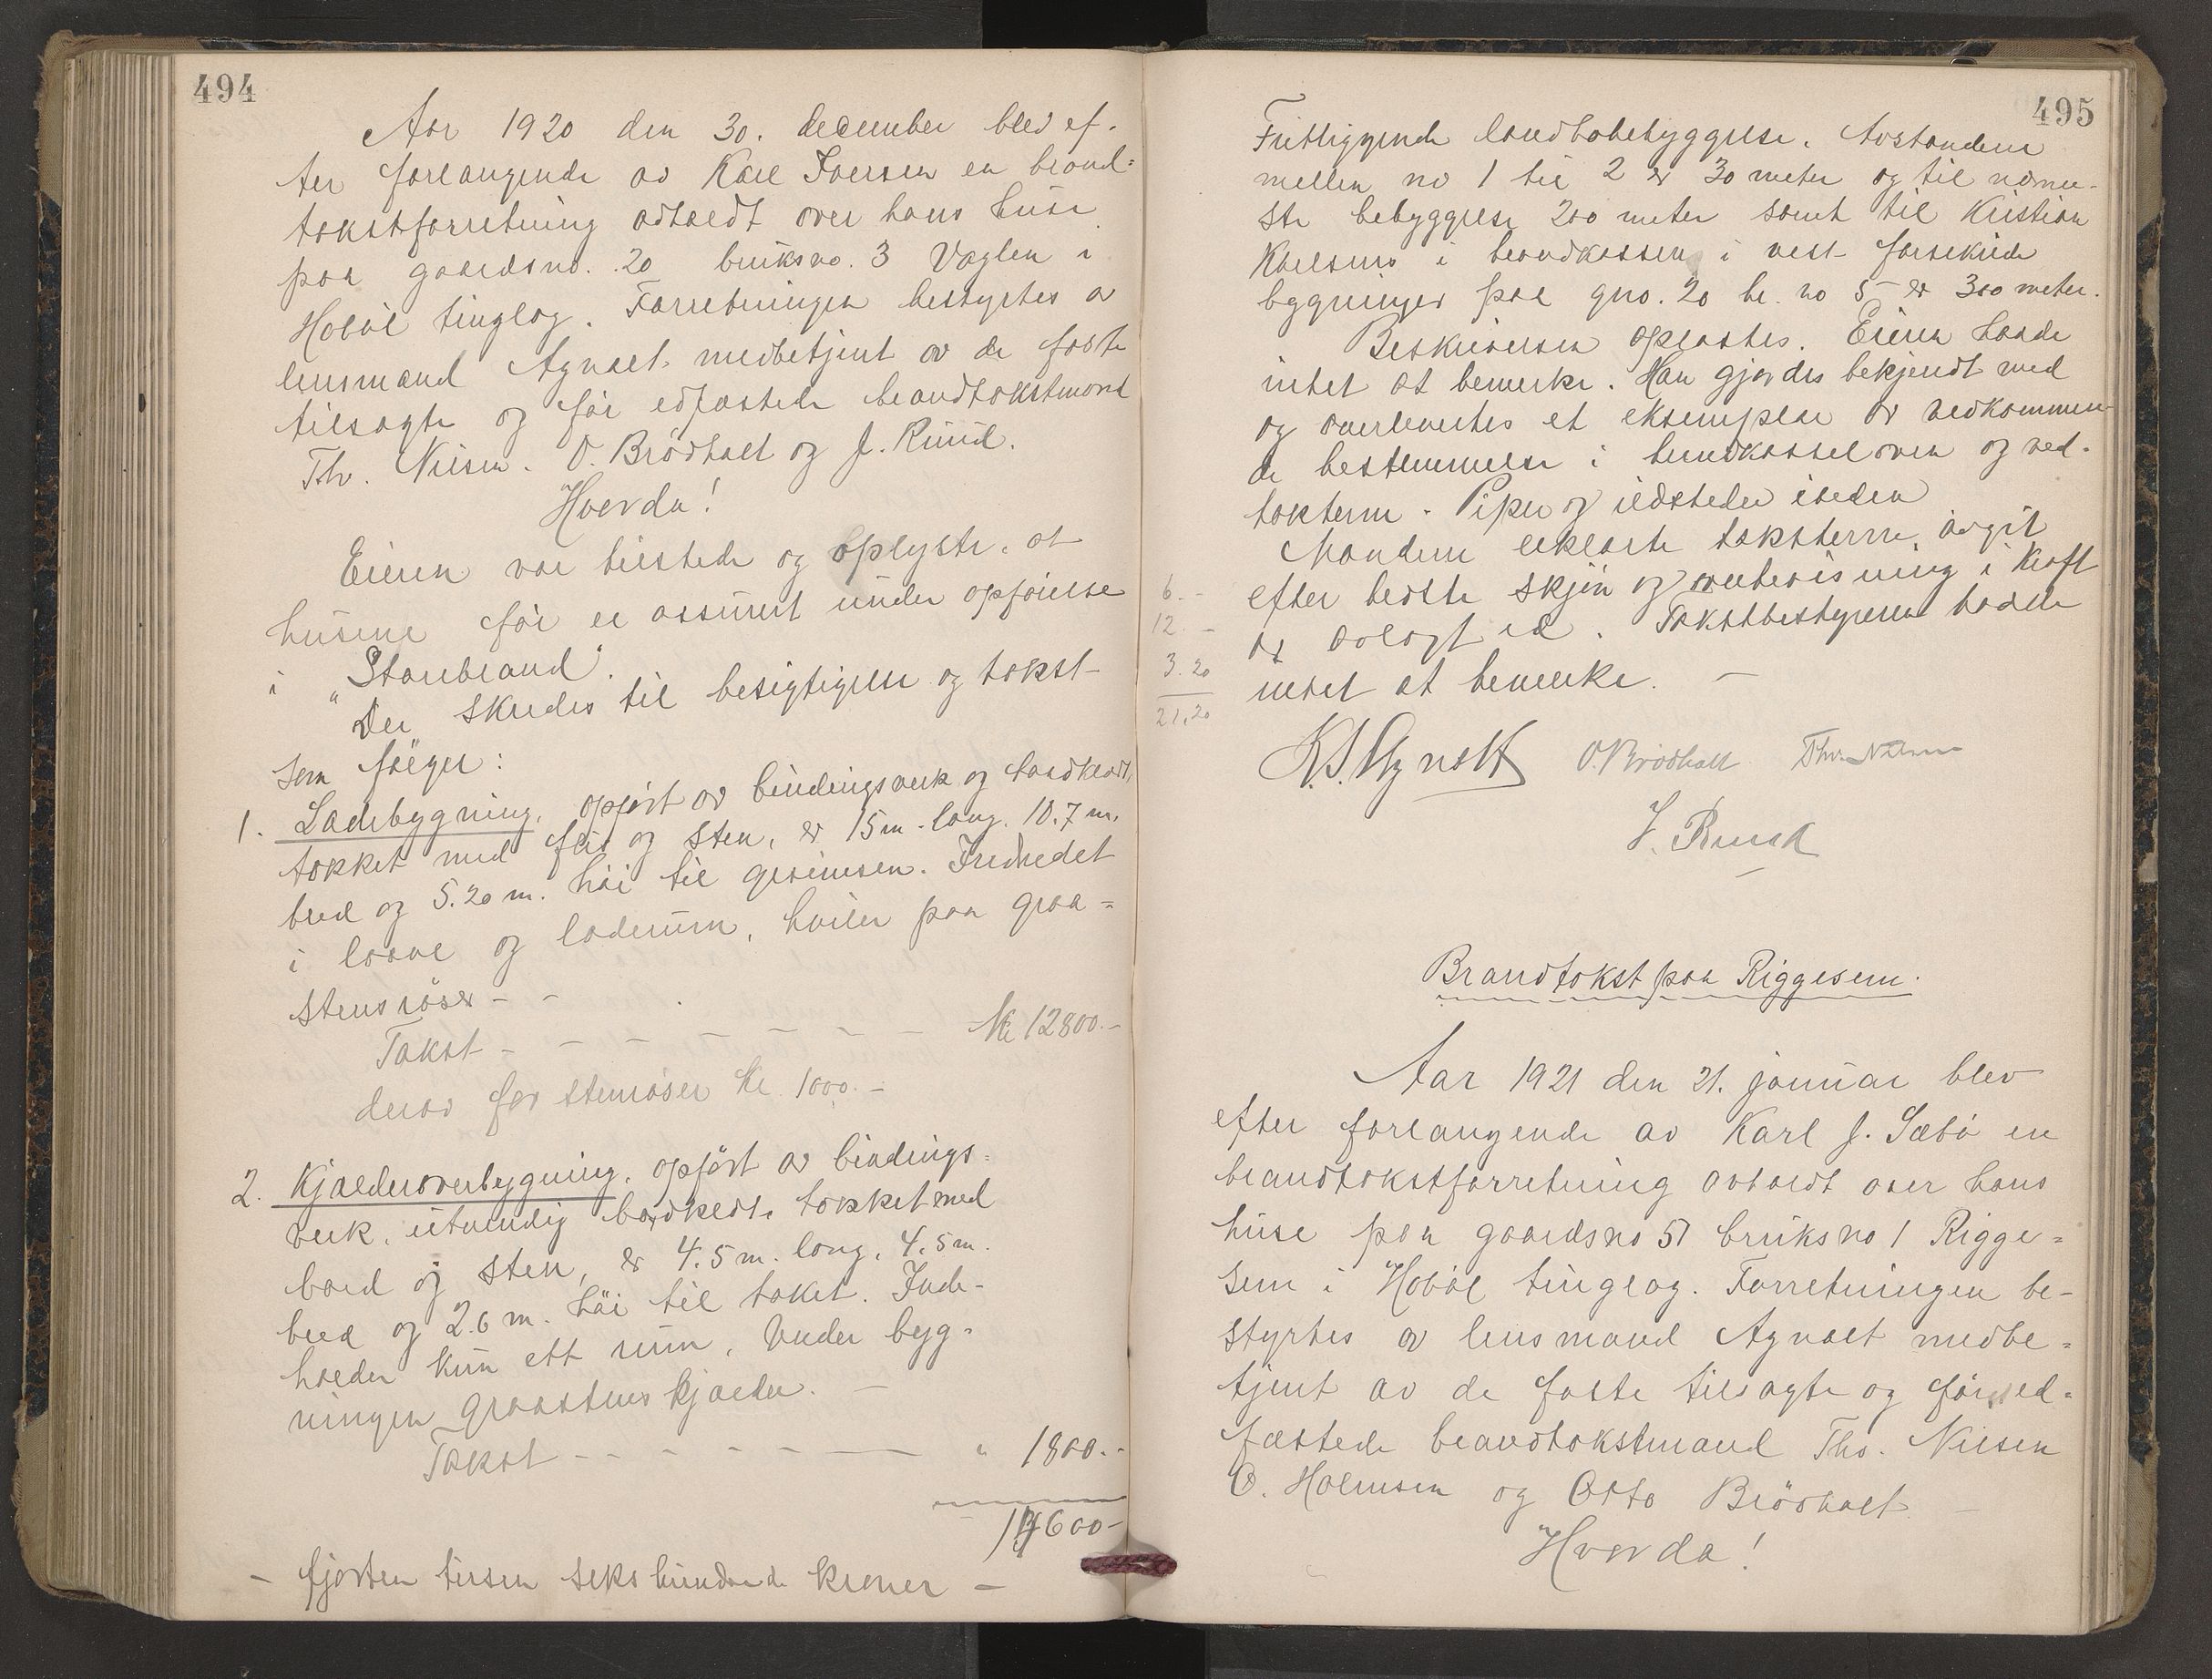 494
Aar 1920 den 30. december blev ef-
ter forlangende av Karl Iversen en brand-
takstforretning avholdt over hans huse
paa gaardsno. 20 bruksno. 3 Vaglen i
Hobøl tinglag. Forretningen bestyrtes av
lensmand Agnalt medbetjent av de faste
tilsagte og før edfæstede brandtakstmænd
Th. Nilsen. O. Brødholt og J. Ruud.
Hvorda!
Eieren var tilstede og oplyste, at
husene før er assurert under opførelse
i "Storebrand".
Der skredes til besigtigelse og takst
som følger:
1. Ladebygning, opført av bindingsverk og bordklædt,
tækket med flis og sten, er 15 m. lang, 10.7 m.
bred og 5.20 m. høi til gesimsen. Indredet
i laave og laderum, hviler paa graa-
stensrøser - -
Takst - - - - - - - Kr 12800.-
derav for stenrøser Kr. 1000.-
2. Kjælderoverbygning, opført av bindings-
verk, utvendig bordklædt, tækket med
bord og sten, er 4.5 m. lang, 4.5 m.
bred og 2.6 m. høi til taket. Inde-
holder kun ett rum. Under byg-
ningen graastens kjælder. -
Takst - - - - - " 1800.-
14600-
- fjorten tusen seks hundrede kroner -
495
Fritliggende landbobebyggelse. Avstanden
mellen no 1 til 2 er 30 meter og til nærme-
ste bebyggelse 200 meter samt til Kristian
Karlsens i brandkassen i vest forsikrede
bygninger paa gno. 20 br. no 5 er 300 meter.
Beskrivelsen oplæstes. Eieren havde
intet at bemerke. Han gjordes bekjendt med
og overlevertes et eksemplar av vedkommen-
de bestemmelser i brandkasseloven og ved-
tækterne. Piper og ildsteder iorden
Mændene erklærte taksterne avgit
6.- efter bedste skjøn og overbevisning i kraft
12.- av avlagt ed. Takstbestyreren hadde
3.20 intet at bemerke. -
21,20
K. J. Agnalt O. Brødholt Thv. Nilsen
J. Ruud
Brandtakst paa Riggesem.
Aar 1921 den 21. januar blev
efter forlangende av Karl J. Sæbø en
brandtakstforretning avholdt over hans
huse paa gaardsno 51 bruksno 1 Rigge-
sem i Hobøl tinglag. Forretningen be-
styrtes av lensmand Agnalt medbe-
tjent av de faste tilsagte og før ed-
fæstede brandtakstmænd Thv. Nilsen
O. Holmsen og Otto Brødholt -
Hvorda!